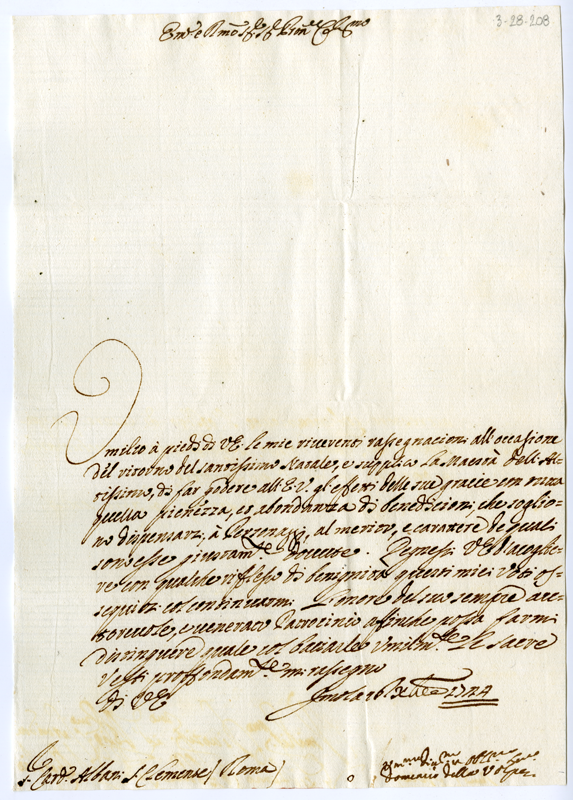 3-28-208
Em.o e Rmo Sig.r Sig.r Pron Col.mo
Umilio à piedi di VE. le mie riverenti rassegnazioni all'occasione
del ritorno del santissimo Natale, e supplico La Maestà dell'Al-
tissimo, di far godere all'E.V. gli effetti delle sue grazie con tutta
quella pienezza, ed abondanza di benedizioni, che soglio-
no dispensarsi à Personaggi, al merito, e carattere de quali
son esse giustam.te dovute. Degnesi VE d'accoglie-
re con qualche riflesso di benignità questi miei voti os-
sequiosi et continuarmi L'onore del suo sempre aut-
torevole, e venerato Patrocinio affinche possa farmi
distinguere quale col baciarle umilm.te Le Sacre
Vesti proffondam.te mi rassegno
Di VE
Imola 16 Xbre 1724
S.r Card. Albani S. Clemente / Roma /
Domenico della Volpe